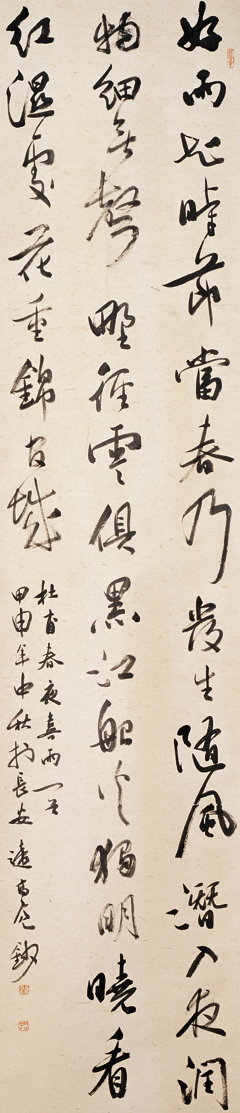 好雨知時節當春乃發生隨風潛入夜潤
物細無聲野徑雲俱黑江船火獨明曉看
紅濕處花重錦官城
杜甫春夜喜雨一首
甲申年中秋於長安遠鈔